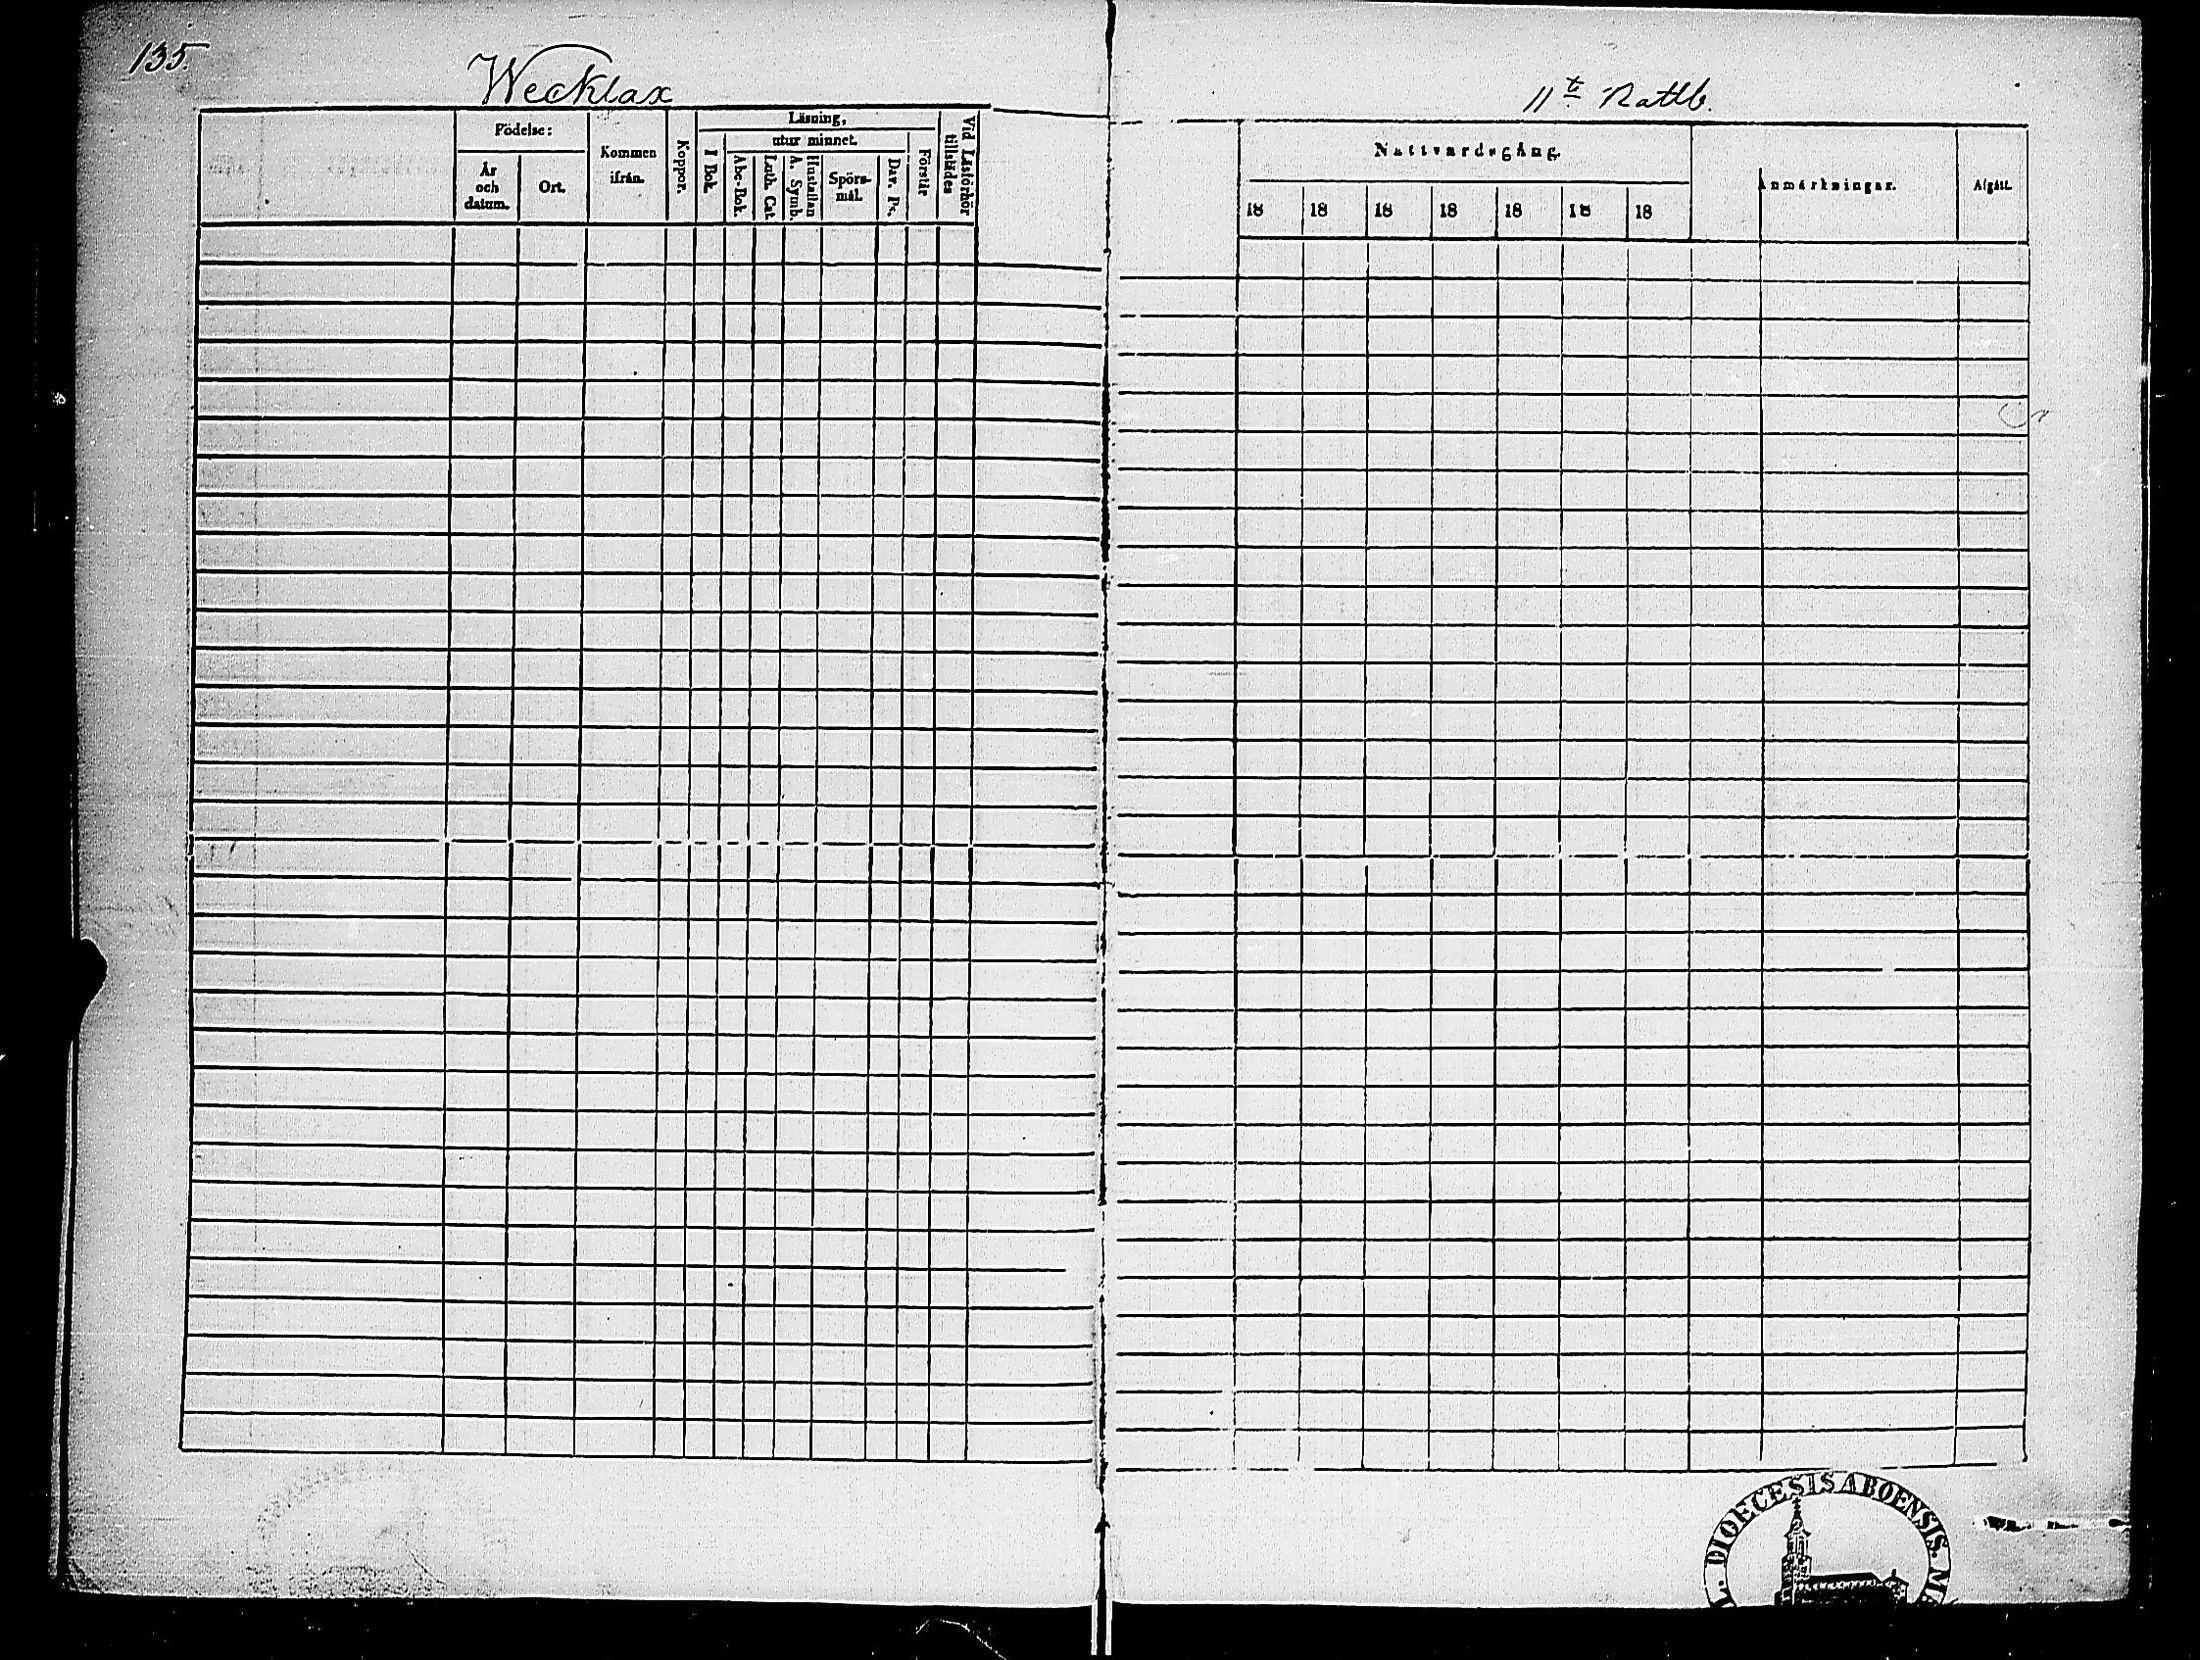 135.
Wecklax
Födelse:
År och datum.
Ort.
Kommen ifrån.
Koppor.
Läsning,
I Bok.
utur minnet.
Abc-Bok.
Luth. Cat.
Hustaflan A. Symb.
Spörsmål.
Dav. Ps.
Förstår
Vid Läsförhör tillstädes
11te Rattb.
Nattvardsgång.
18 18 18 18 18 18 18
Anmärkningar.
Afgått.
DIOECESIS ABOENSIS.